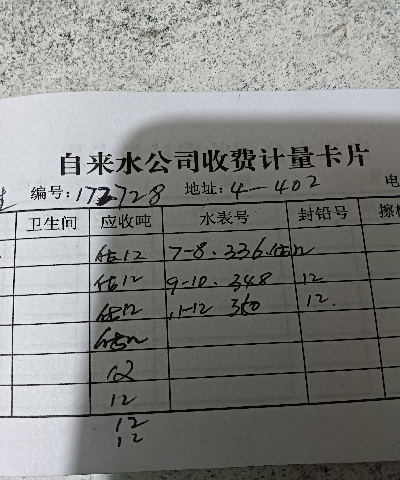 自来水公司收费计量卡片
编号:172728 地址:4-402 电
卫生间 应收吨 水表号 封铅号 擦
估12 7-8. 336. 估12
估12 9-10. 348 12
估12 11-12 360 12.
估12
12
12
12
12